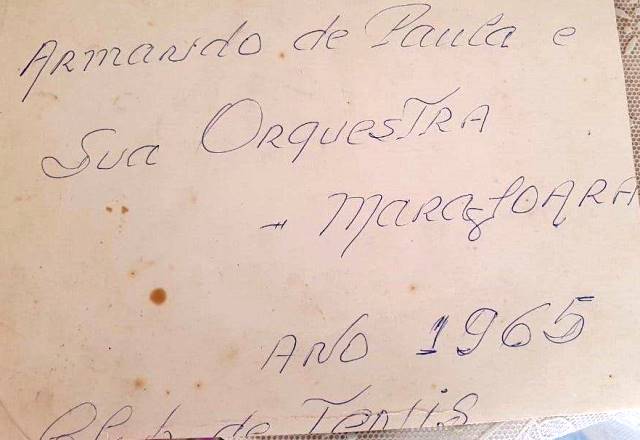 Armando de Paula e
Sua Orquestra
- Marajoara
ANO 1965
Club de Tenis